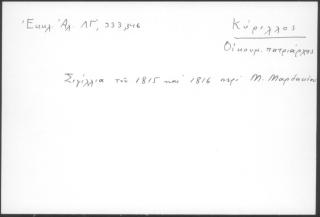 Ἐκκλ. Ἀλ. ΛΓ, 333, 346
Κύριλλος
Οἰκουμ. πατριάρχης
Σιγίλλια τοῦ 1815 καὶ 1816 περὶ Μ. Μαρδακίου